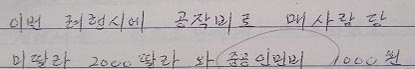 이번 려행시에 공작비로 매사람당
미딸라 2000딸라와 중공인민비 1000원